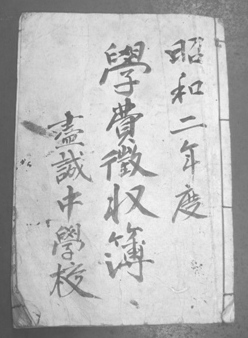 昭和二年度
學費徵收簿
壼誠中學校